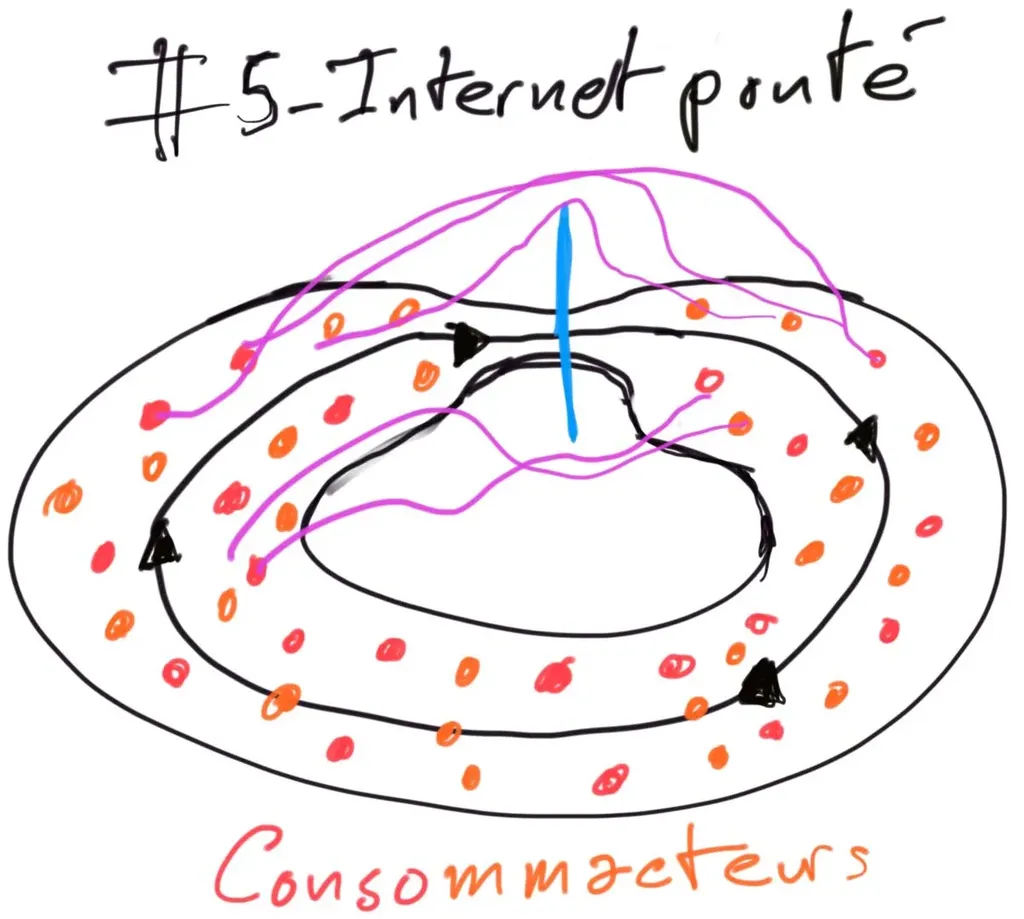 #5-Internet ponté
Consommacteurs